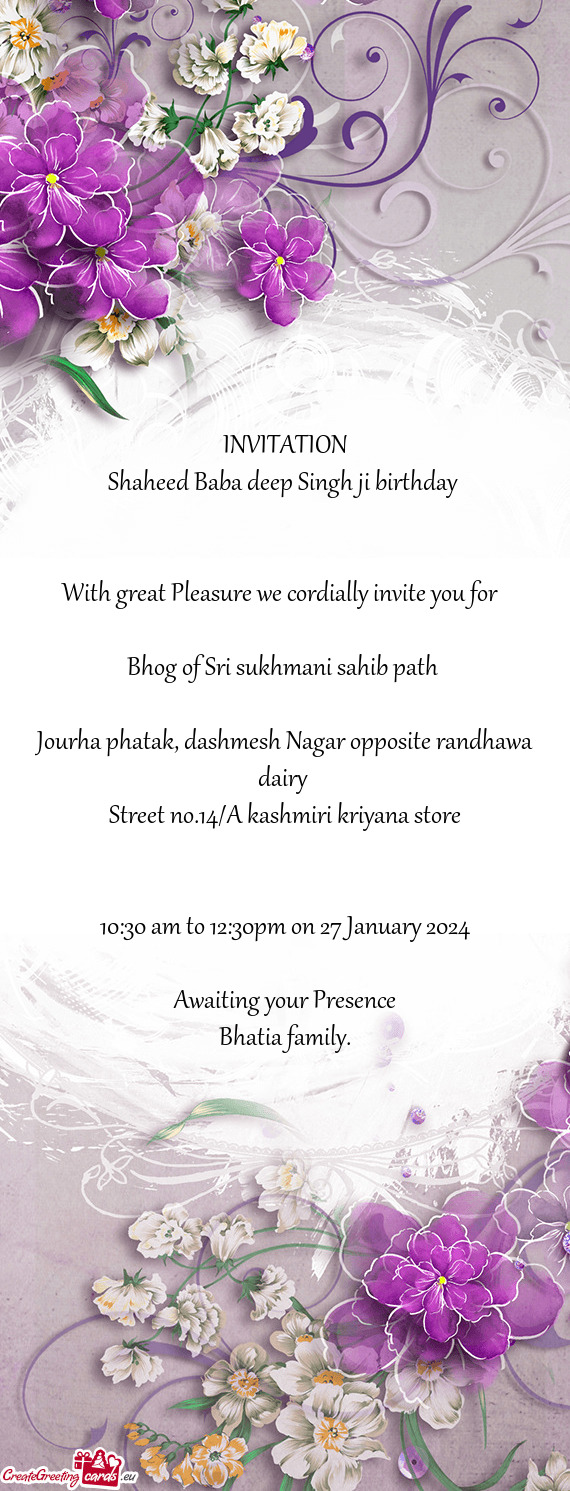 INVITATION
Shaheed Baba deep Singh ji birthday
With great Pleasure we cordially invite you for
Bhog of Sri sukhmani sahib path
Jourha phatak, dashmesh Nagar opposite randhawa
dairy
Street no.14/A kashmiri kriyana store
10:30 am to 12:30pm on 27 January 2024
Awaiting your Presence
Bhatia family.
CreateGreeting cards .eu